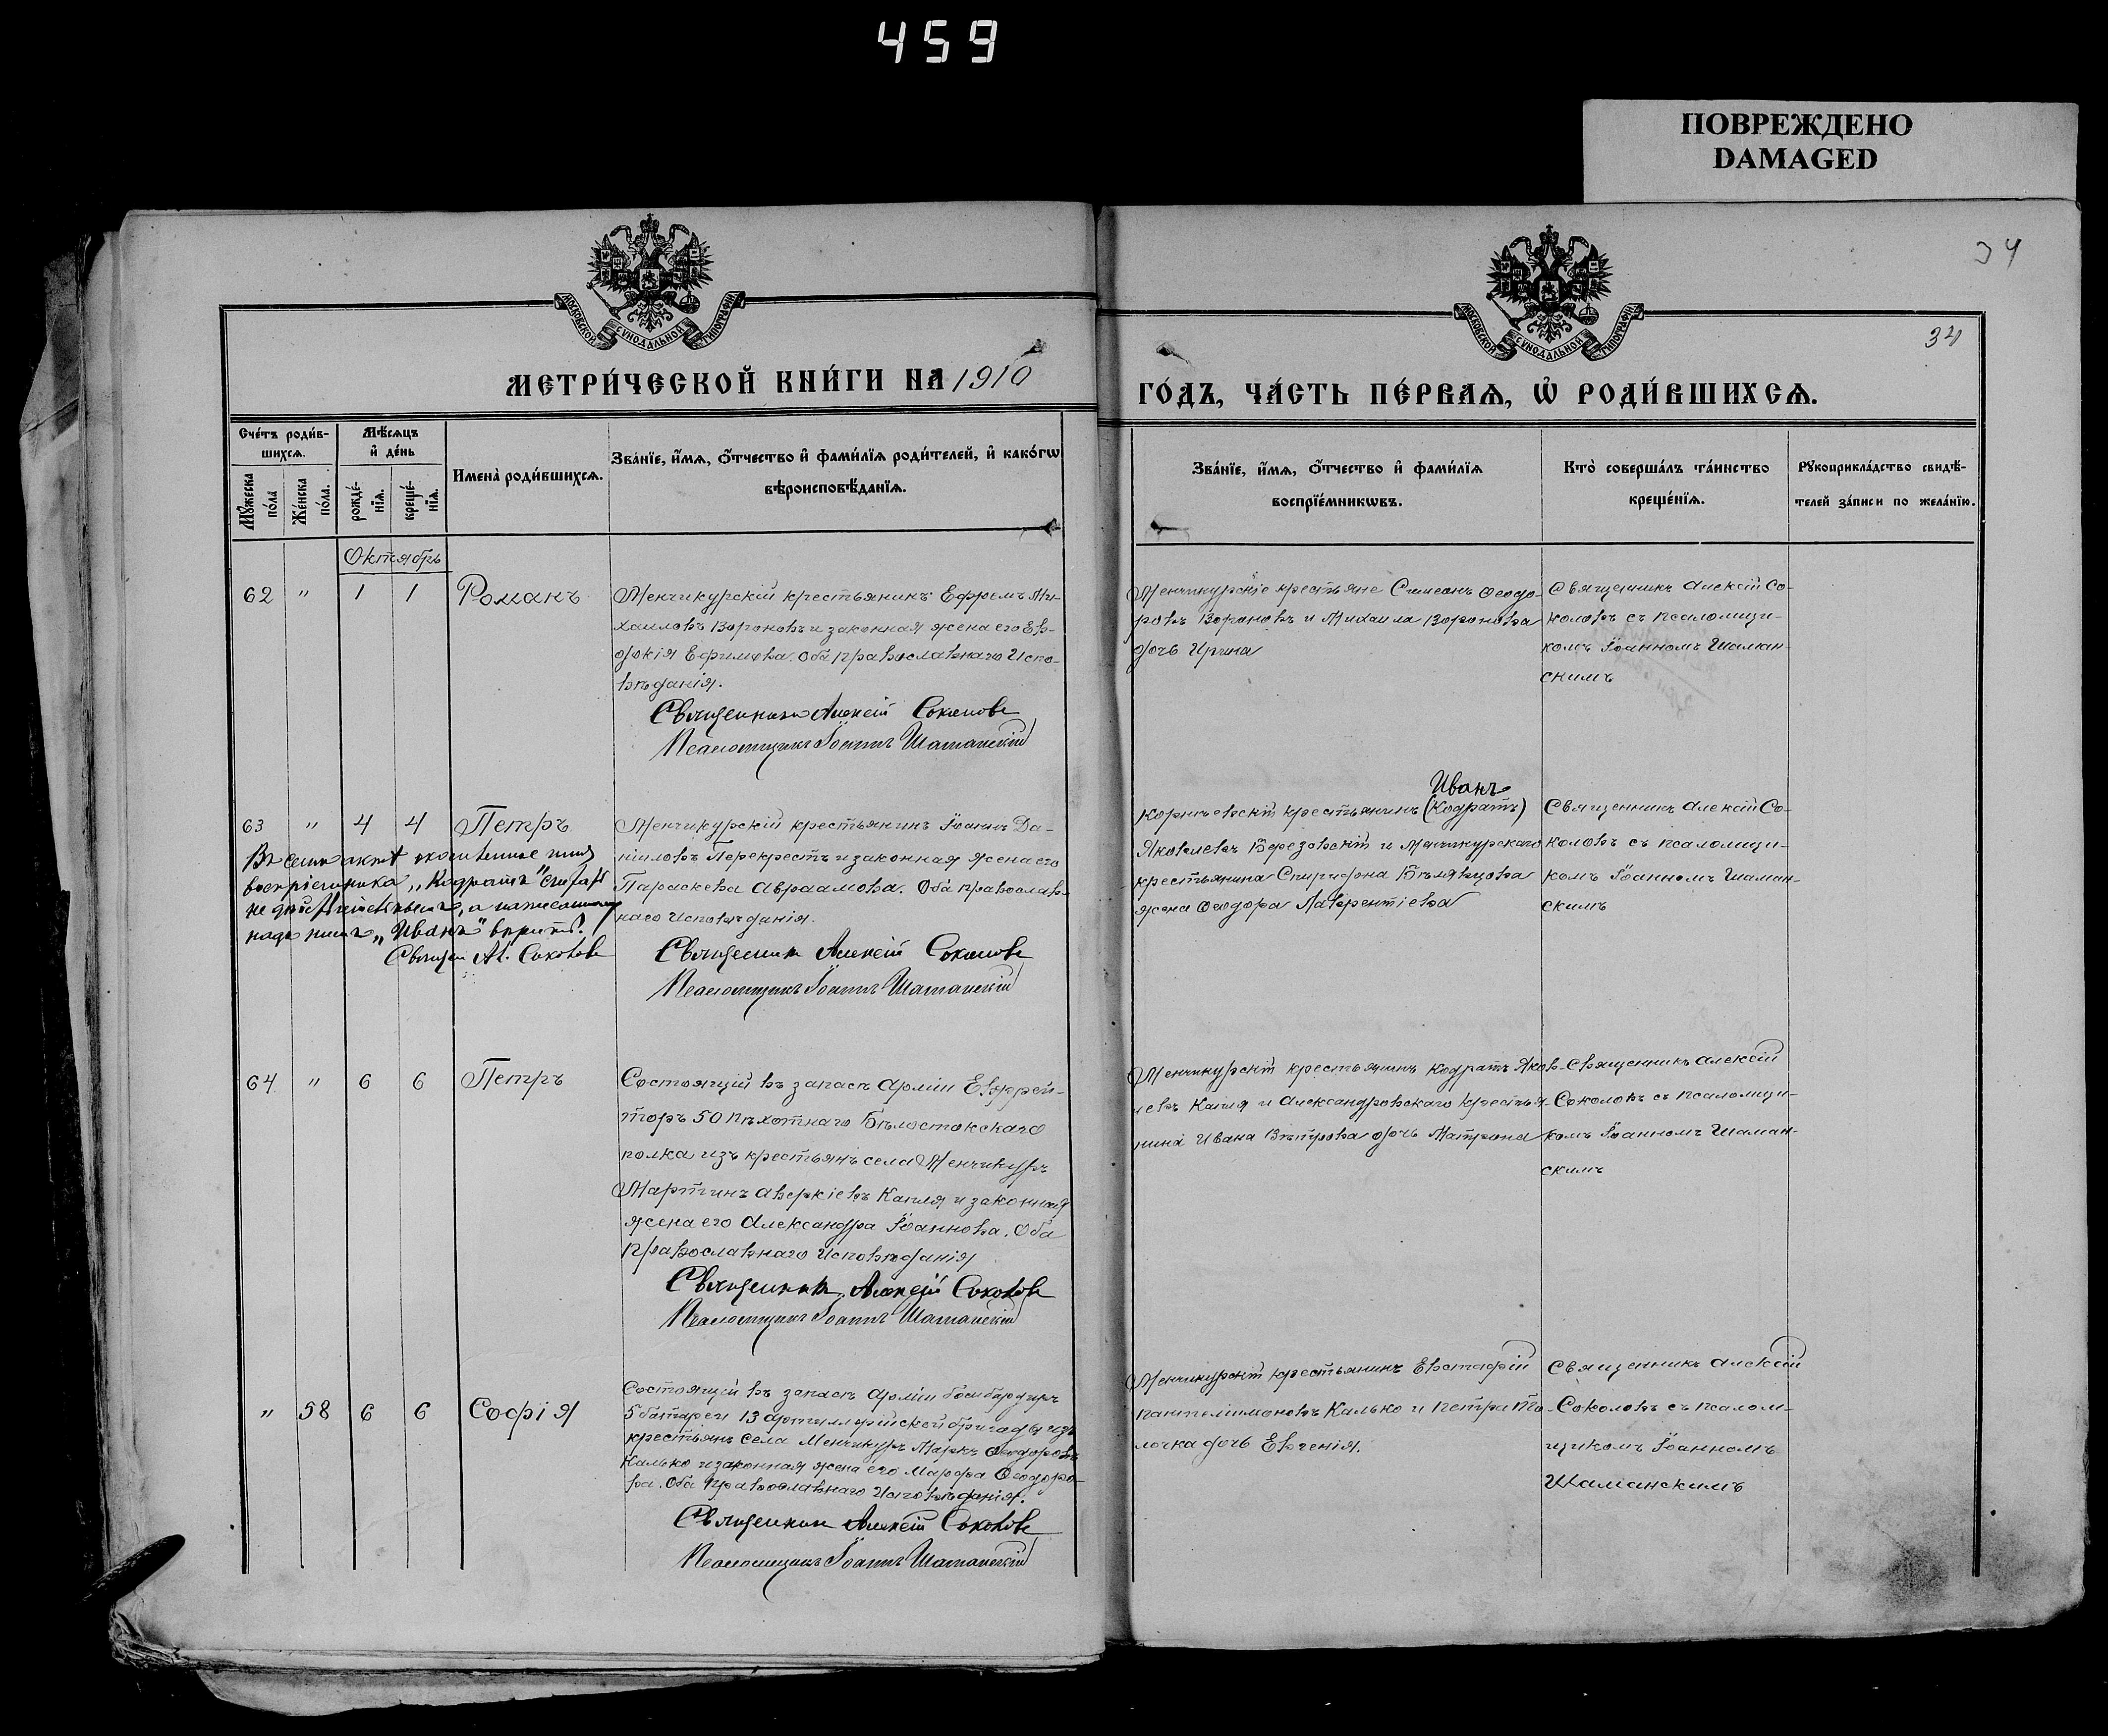 459
ПОВРЕЖДЕНО
DAMAGED
34
34
МОСКОВСКОЙ СѴНОДАЛЬНОЙ ТИПОГРАФІИ
МОСКОВСКОЙ СѴНОДАЛЬНОЙ ТИПОГРАФІИ
МЕТРИ́ЧЕСКОЙ КНИ́ГИ НА 1910
ГО́ДЪ, ЧА́СТЬ ПЕ́РВАѦ, Ѡ҆ РОДИ́ВШИХСѦ.
Сче́тъ роди́в-
шихсѧ.
Мꙋ́жеска по́ла
Же́нска по́ла.
Мѣ́сѧцъ и҆ де́нь
рожде́-нїѧ.
креще́-нїѧ.
Имена̀ роди́вшихсѧ.
Зва́нїе, и҆́мѧ, ѻ҆́тчество и҆ фами́лїѧ роди́телей, и҆ како́гѡ
вѣроисповѣ́данїѧ.
Зва́нїе, и҆́мѧ, ѻ҆́тчество и҆ фами́лїѧ
воспрїе́мникѡвъ.
Кто̀ соверша́лъ та́инство
креще́нїѧ.
Рꙋкоприкла́дство свидѣ́-
телей за́писи по жела́нїю.
Октябрь
62 " 1 1 Романъ
Менчикурскій крестьянинъ Ефремъ Ми-
хаиловъ Вороновъ и законная жена его Ев-
докія Ефимова. Оба православнаго Испо-
вѣданія.
Священникъ Алексій Соколовъ
Псаломщикъ Іоаннъ Шаманскій
Менчикурскіе крестьяне Симеонъ Ѳеодо-
ровъ Вороновъ и Михаила Воронова
дочь Ирина
Священникъ Алексій Со-
коловъ съ псаломщи-
комъ Іоанномъ Шаман-
скимъ
63 " 4 4 Петръ
Въ семъ актѣ имя
воспріемника „Кодратъ" считать
не дѣйствительнымъ, а написанному
надъ нимъ „Иванъ" вѣрить.
Священ. Ал. Соколовъ
Менчикурскій крестьянинъ Іоаннъ Да-
ніиловъ Перекрестъ и законная жена его
Параскева Авраамова. Оба православ-
наго Исповѣданія.
Священникъ Алексій Соколовъ
Псаломщикъ Іоаннъ Шаманскій
Иванъ
крестьянинъ (Кодратъ)
Яковлевъ Березовскій и Менчикурскаго
крестьянина Спиридона
жена Ѳеодора Лаврентіева
Священникъ Алексій Со-
коловъ съ псаломщи-
комъ Іоанномъ Шаман-
скимъ
64 " 6 6 Петръ
Состоящій въ запасѣ Арміи Ефрей-
торъ 50 пѣхотнаго Бѣлостокскаго
полка изъ крестьянъ села Менчикуръ
Мартинъ Аверкіевъ Капля и законная
жена его Александра Іоаннова. Оба
православнаго Исповѣданія
Священникъ Алексій Соколовъ
Псаломщикъ Іоаннъ Шаманскій
Менчикурскій крестьянинъ Кодратъ Яков-
левъ Капля и Александровскаго крестья-
нина Ивана Вѣтрова дочь Матрона
Священникъ Алексій
Соколовъ съ псаломщи-
комъ Іоанномъ Шаман-
скимъ
" 58 6 6 Софія
Состоящій въ запасѣ Арміи бомбардиръ
5 батареи 13 артиллерійской бригады изъ
крестьянъ села Менчикуръ Маркъ Ѳеодоровъ
Калько и законная жена его Марфа Ѳеодоро-
ва. Оба Православнаго Исповѣданія.
Священникъ Алексій Соколовъ
Псаломщикъ Іоаннъ Шаманскій
Менчикурскій крестьянинъ Евстафій
Пантелімоновъ Калько и Петра То-
лочка дочь Евгенія.
Священникъ Алексій
Соколовъ съ псалом-
щикомъ Іоанномъ
Шаманскимъ